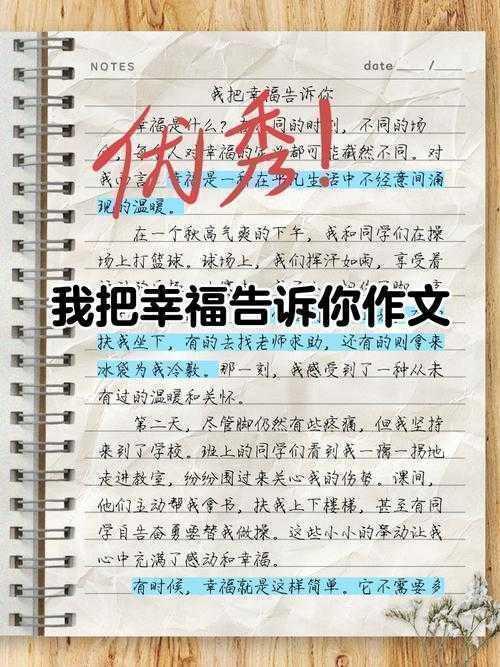 NOTES date
我把幸福告诉你
优秀!
幸福是什么？同的时刻，不同的场
人对幸福的都可能截然不同。对
我幸福是一种在平凡生活中不经意间涌
现的温暖。
在一个秋高气爽的下午，我和同学们在操
场上打篮球。球场上，我们挥汗如雨，享受着
我把幸福告诉你作文
扶我坐下，有的去找老师求助，还有的则拿来
冰袋为我冷敷。那一刻，我感受到了一种从未
有过的温暖和关怀。
第二天，尽管脚仍然有些疼痛，但我坚持
来到了学校。班上的同学们看到我一瘸一拐地
走进教室，纷纷围过来关心我的伤势。课间，
他们主动帮我拿书，扶我上下楼梯，甚至有同
学自告奋勇要替我做操。这些小小的举动让我
心中充满了感动和幸福。
有时候，幸福就是这样简单。它不需要多